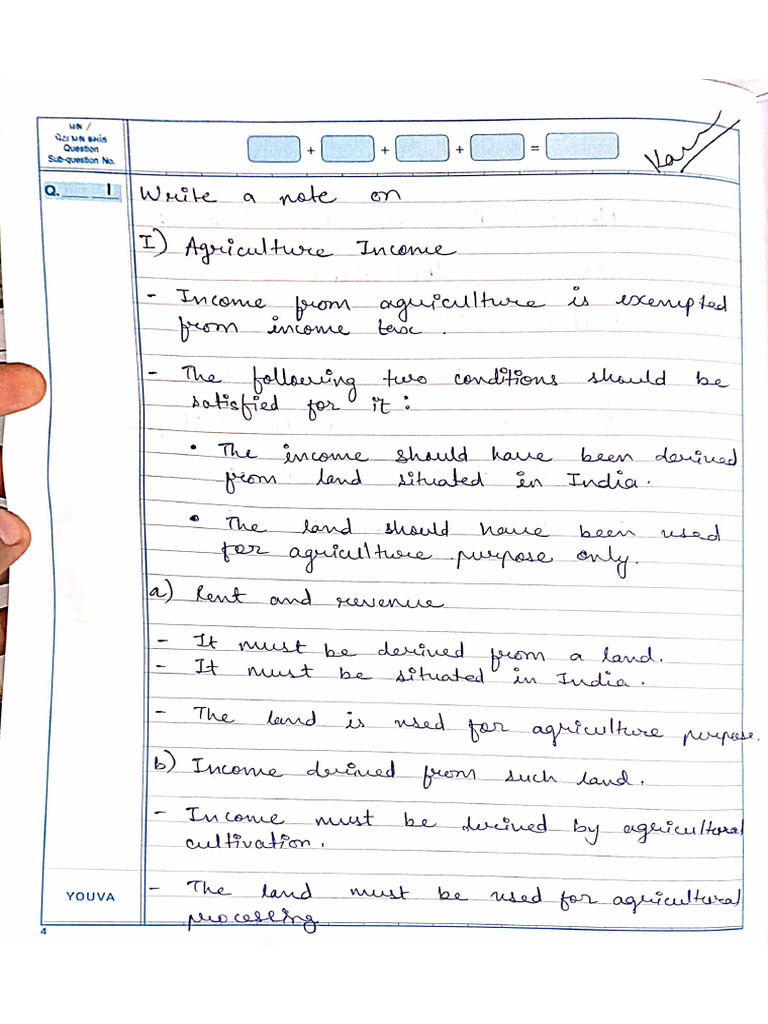 Question
Sub-question No.
+ + + =
Q. 1
Write a note on
I) Agriculture Income
- Income from agriculture is exempted
from income tax.
- The following two conditions should be
satisfied for it :
• The income should have been derived
from land situated in India.
• The land should have been used
for agriculture purpose only.
a) Rent and revenue
- It must be derived from a land.
- It must be situated in India.
- The land is used for agriculture purpose.
b) Income derived from such land.
- Income must be derived by agricultural
cultivation.
- The land must be used for agricultural
processing.
YOUVA
4